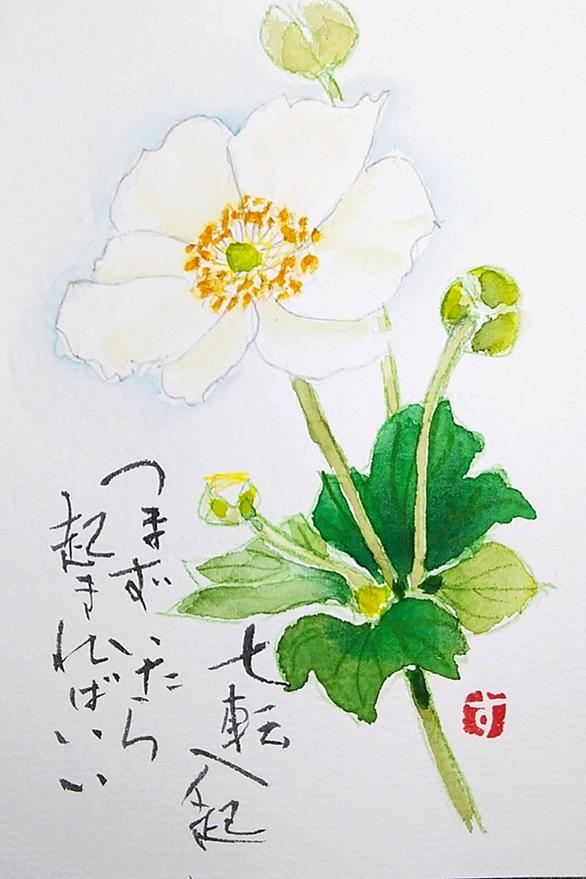 七転八起
つまずいたら
起きればいい